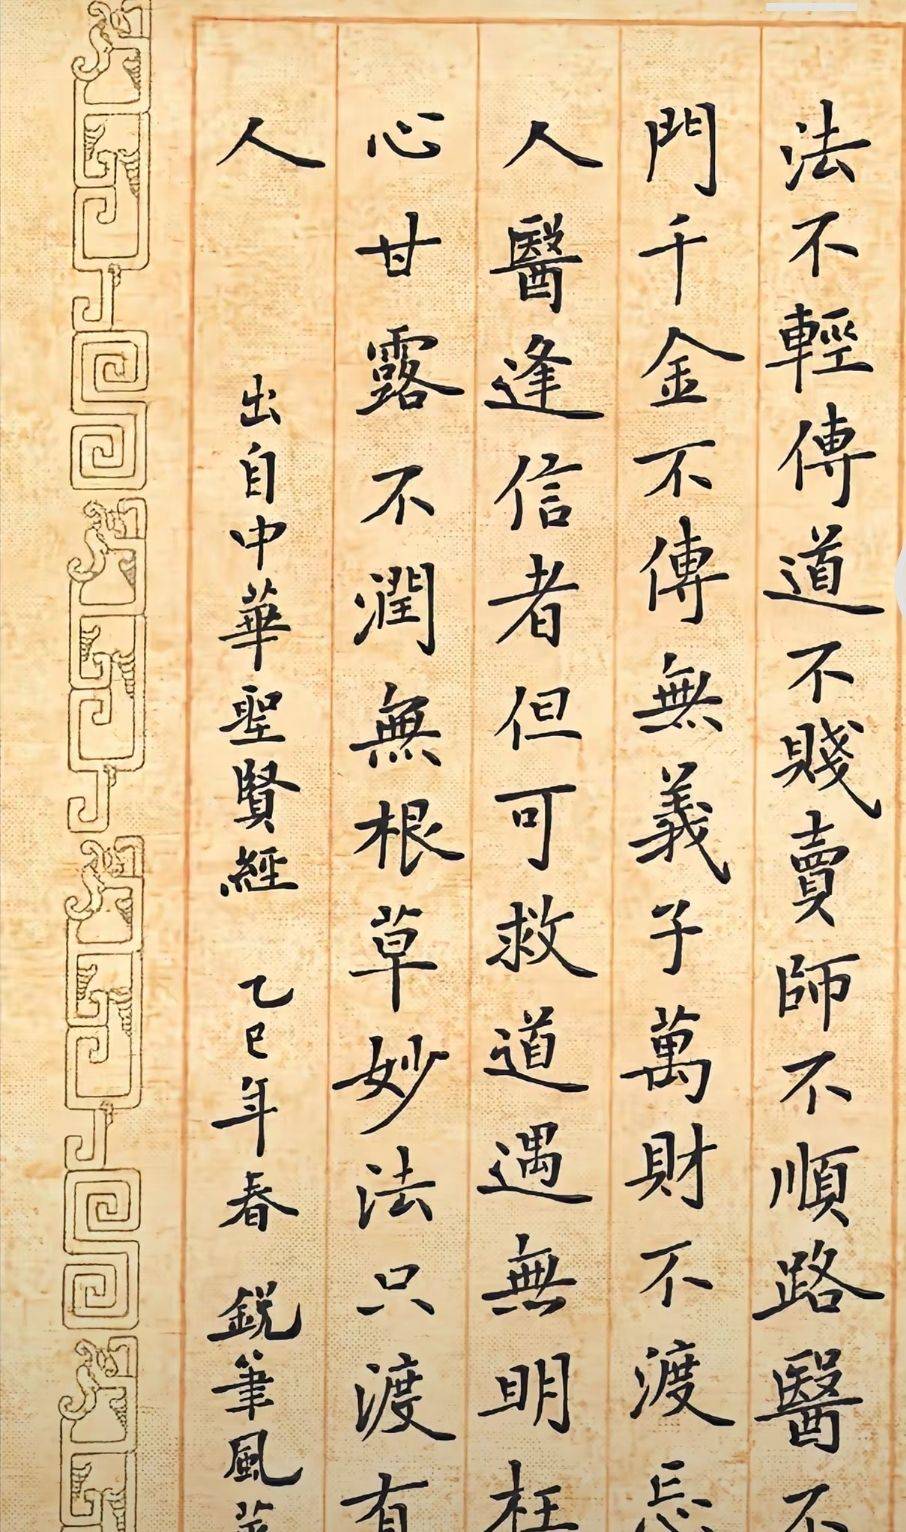 法不輕傳道不賤賣師不順路醫不
門千金不傳無義子萬財不渡忘
人醫逢信者但可救道遇無明枉
心甘露不潤無根草妙法只渡有
人
出自中華聖賢經
乙巳年春
銳筆風